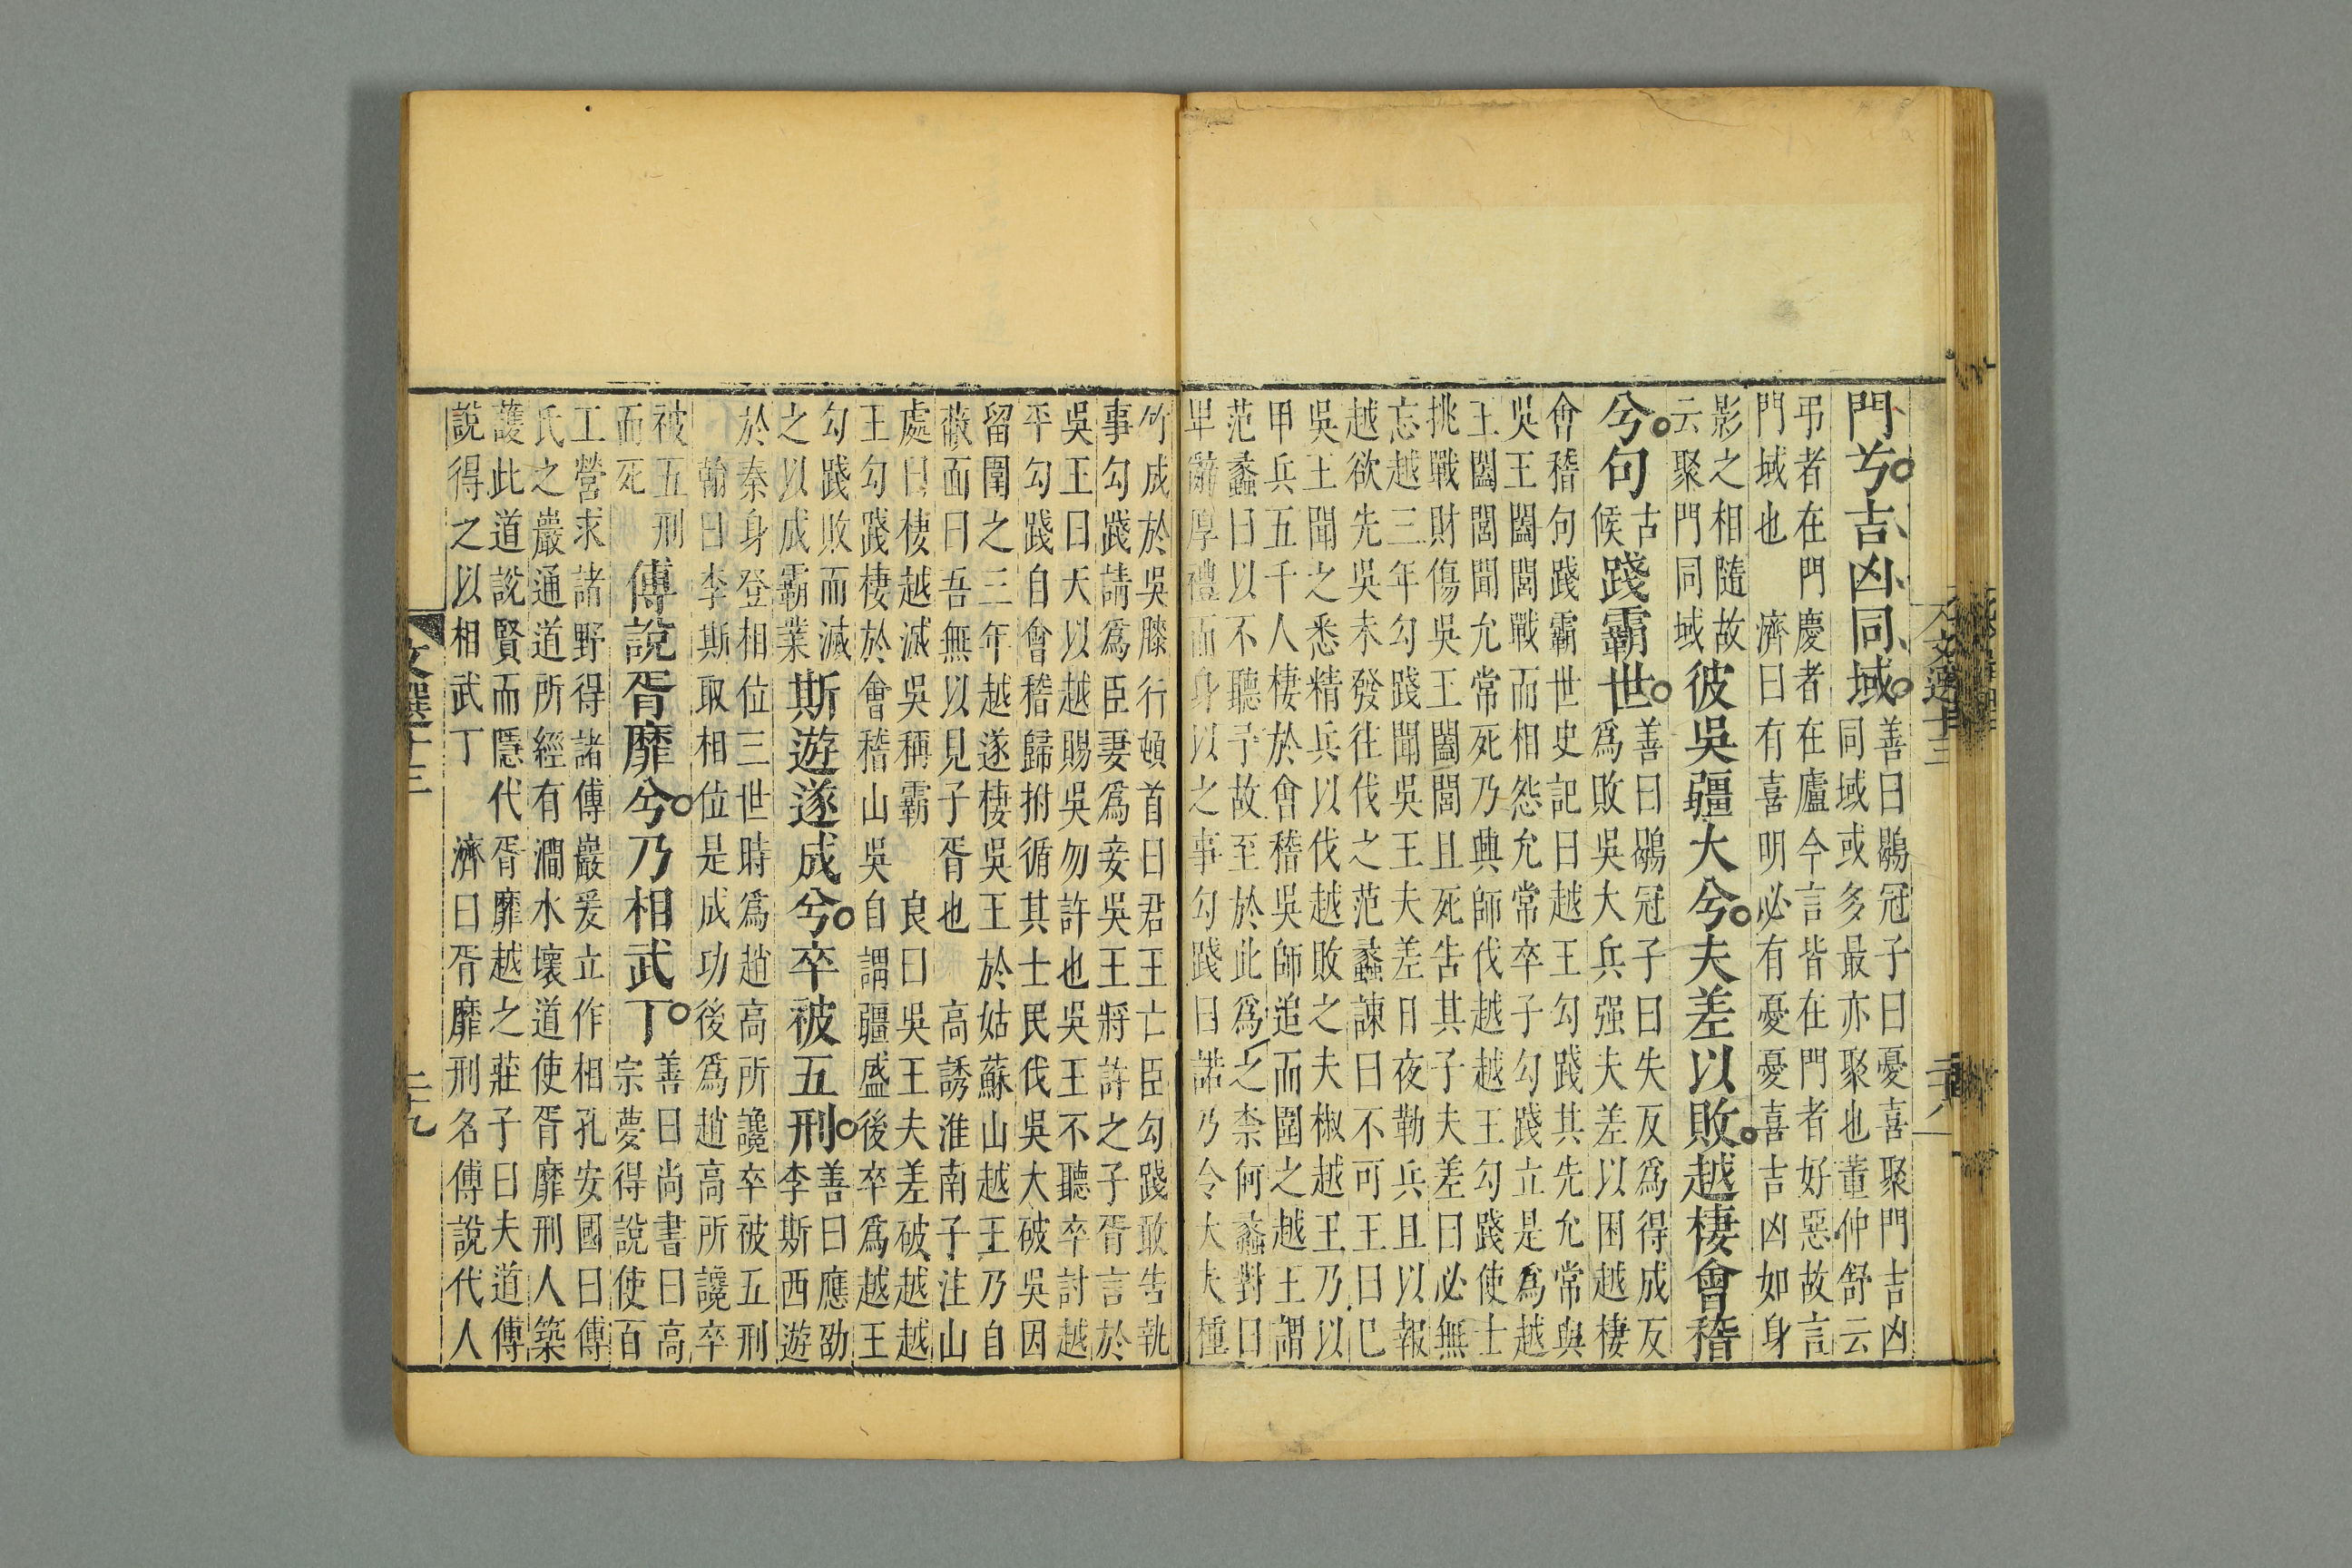 門兮吉凶同域善曰鶡冠子曰憂喜聚門吉凶
同域或多最亦聚也董仲舒云
弔者在門慶者在廬今言皆在門者好惡故言
門域也 濟曰有喜明必有憂憂喜吉凶如身
影之相隨故
云聚門同域
彼吳疆大兮夫差以敗越棲會稽
兮句古候踐霸世善曰鶡冠子曰失反爲得成反
爲敗吳大兵强夫差以困越棲
會稽句踐霸世史記曰越王勾踐其先允常與
吳王闔閭戰而相怨允常卒子勾踐立是爲越
王闔閭聞允常死乃興師伐越越王勾踐使士
挑戰財傷吳王闔閭且死告其子夫差曰必無
忘越三年勾踐聞吳王夫差日夜勒兵且以報
越欲先吳未發往伐之范蠡諫曰不可王曰已
吳王聞之悉精兵以伐越敗之夫椒越王乃以
甲兵五千人棲於會稽吳師追而圍之越王謂
范蠡曰以不聽子故至於此爲之柰何蠡對曰
卑辭厚禮而身以之事勾踐曰諾乃令大夫種
竹成於吳膝行頓首曰君王亡臣勾踐敢告執
事勾踐請爲臣妻爲妾吳王將許之子胥言於
吳王曰天以越賜吳勿許也吳王不聽卒討越
平勾踐自會稽歸拊循其士民伐吳大破吳因
留圍之三年越遂棲吳王於姑蘇山越王乃自
蔽面曰吾無以見子胥也 高誘淮南子注山
處曰棲越滅吳稱霸 良曰吳王夫差破越越
王勾踐棲於會稽山吳自謂疆盛後卒爲越王
勾踐敗而滅
之以成霸業
斯遊遂成兮卒被五刑善曰應劭
李斯西遊
於秦身登相位三世時爲趙高所讒卒被五刑
翰曰李斯取相位是成功後爲趙高所讒卒
被五刑
而死
傅說胥靡兮乃相武丁善曰尚書曰高
宗夢得說使百
工營求諸野得諸傅巖爰立作相孔安國曰傅
氏之巖通道所經有澗水壞道使胥靡刑人築
護此道說賢而隱代胥靡越之莊子曰夫道傅
說得之以相武丁 濟曰胥靡刑名傅說代人
文選十三
二十九